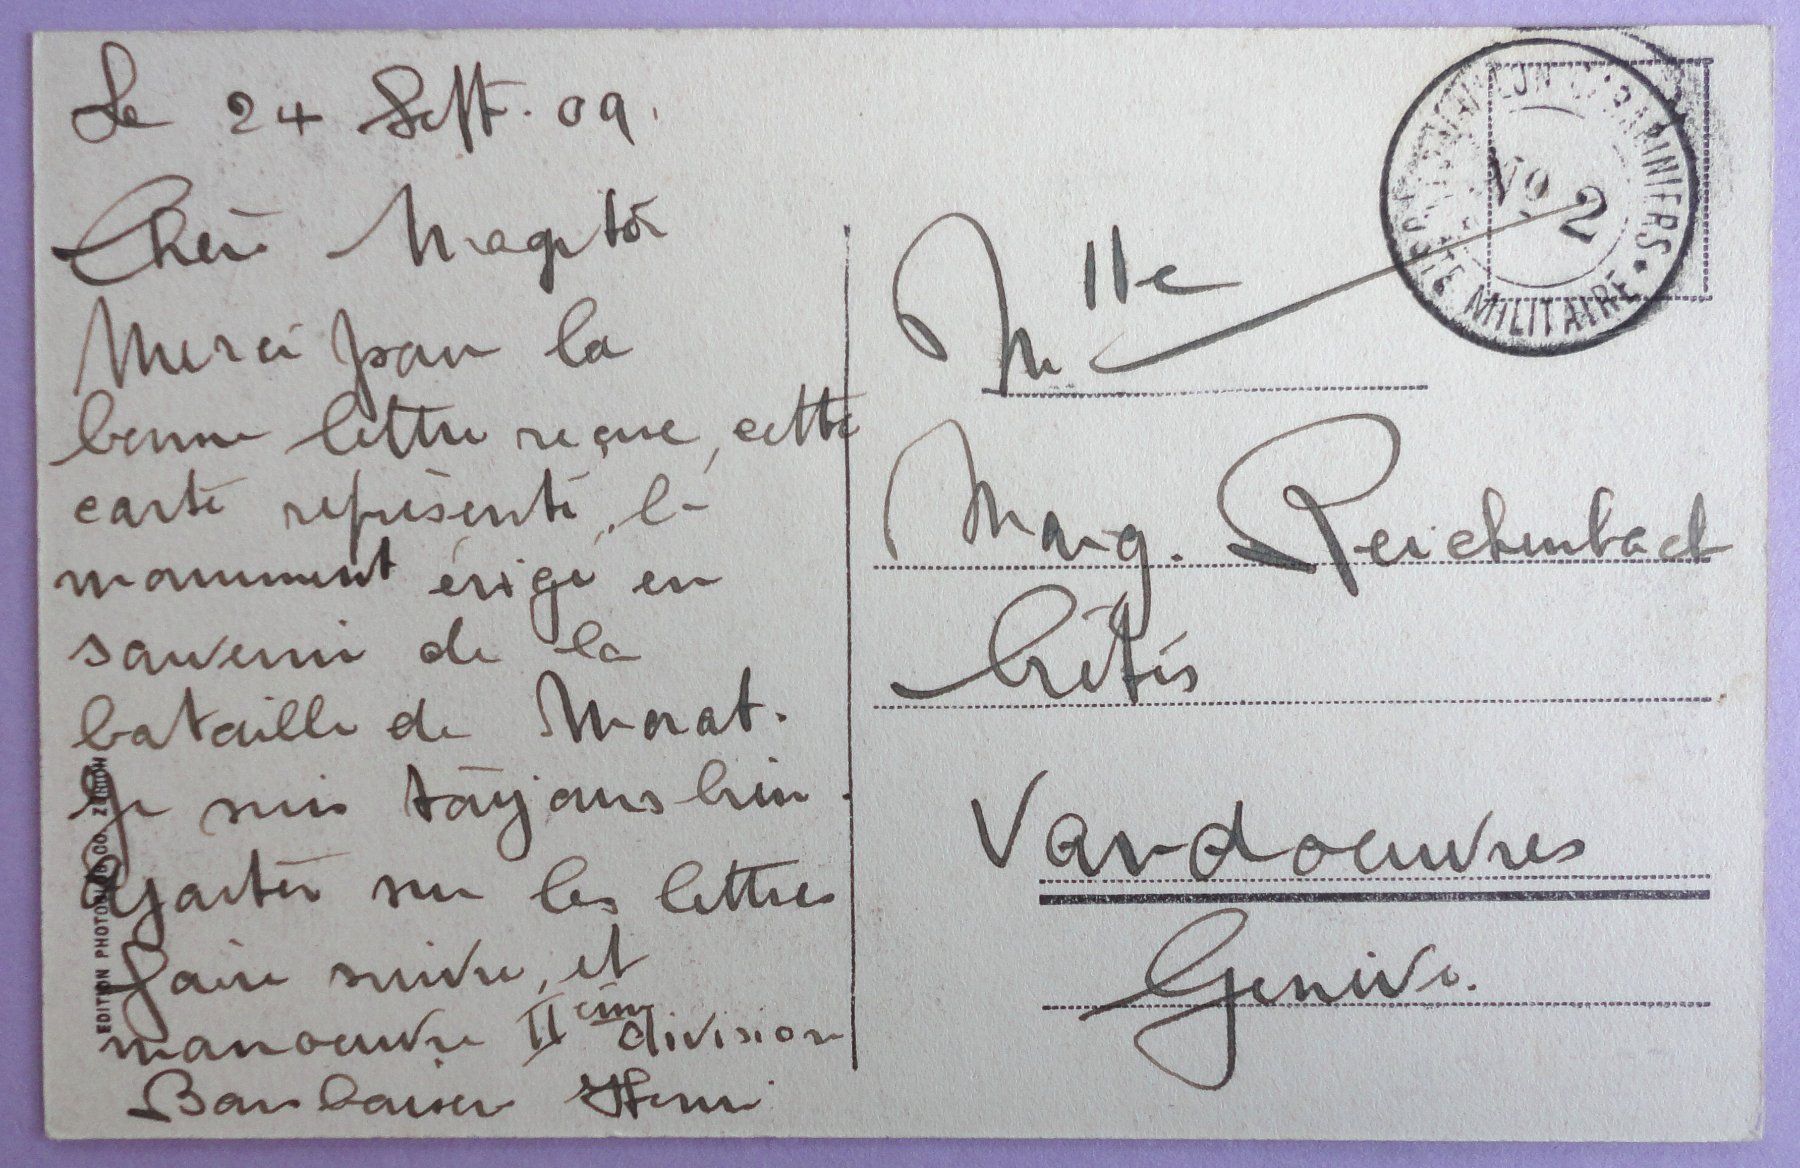 Le 24 Sept. 09.
Chère Magitor
Merci pour la
bonne lettre reçue, cette
carte représente, le
monument érigé en
souvenir de la
bataille de Morat.
Je suis toujours bien.
faire suivre, et
sur les lettres
manoeuvre IIème division
Bons baisers Henri
EDITION PHOTOGLOB CO. ZÜRICH
Mlle
Marg. Reichenbach
Crêtes
Vandoeuvres
Genève.
CARABINIERS
No 2
POSTE MILITAIRE